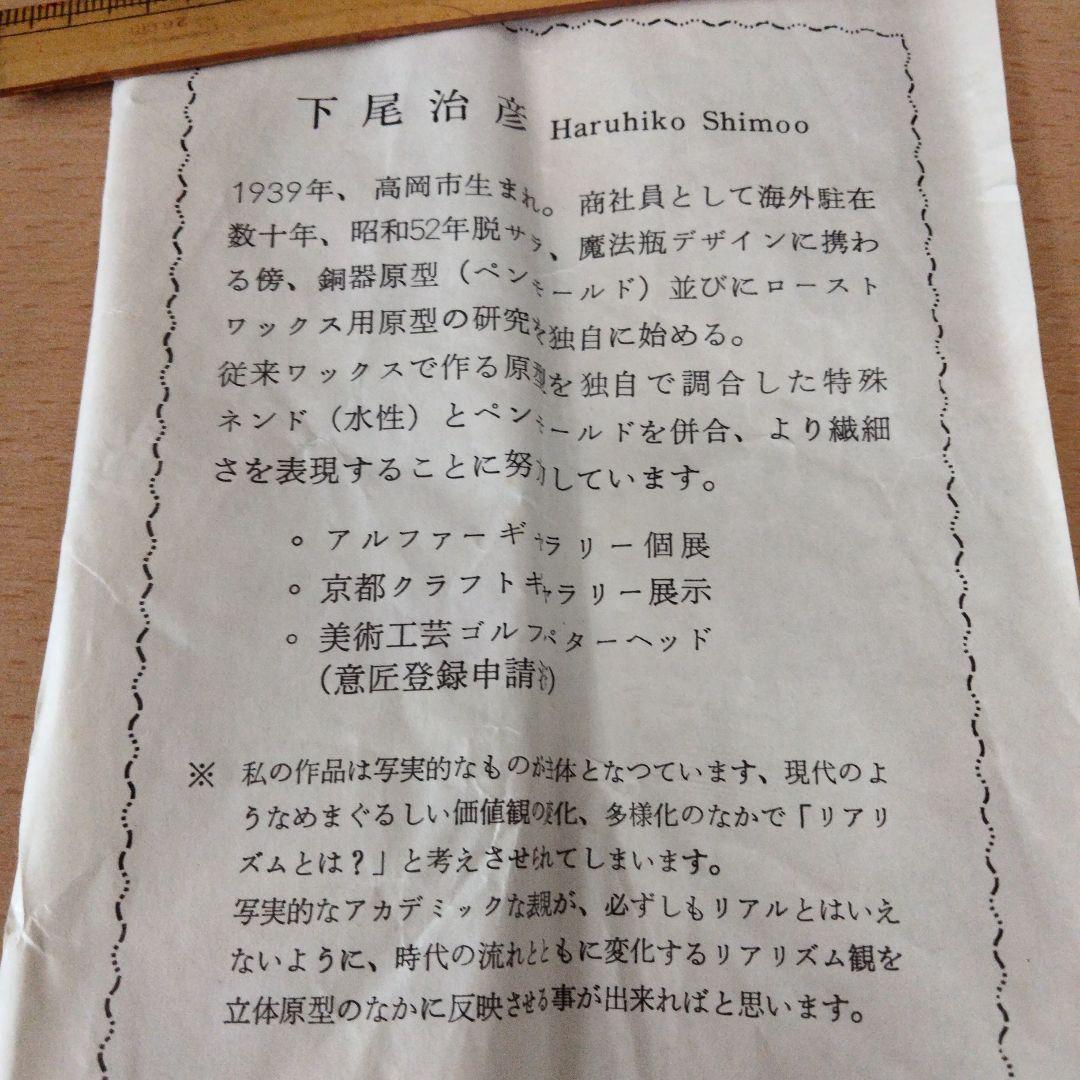 下尾治彦 Haruhiko Shimoo
1939年、高岡市生まれ。商社員として海外駐在
数十年、昭和52年脱サラ、魔法瓶デザインに携わ
る傍、銅器原型（ペンモールド）並びにロースト
ワックス用原型の研究を独自に始める。
従来ワックスで作る原型を独自で調合した特殊
ネンド（水性）とペンモールドを併合、より繊細
さを表現することに努力しています。
○ アルファーギャラリー個展
○ 京都クラフトギャラリー展示
○ 美術工芸ゴルフパターヘッド
(意匠登録申請済)
※ 私の作品は写実的なものが主体となつています、現代のよ
うなめまぐるしい価値観の変化、多様化のなかで「リアリ
ズムとは？」と考えさせられてしまいます。
写実的なアカデミックな表現が、必ずしもリアルとはいえ
ないように、時代の流れとともに変化するリアリズム観を
立体原型のなかに反映させる事が出来ればと思います。